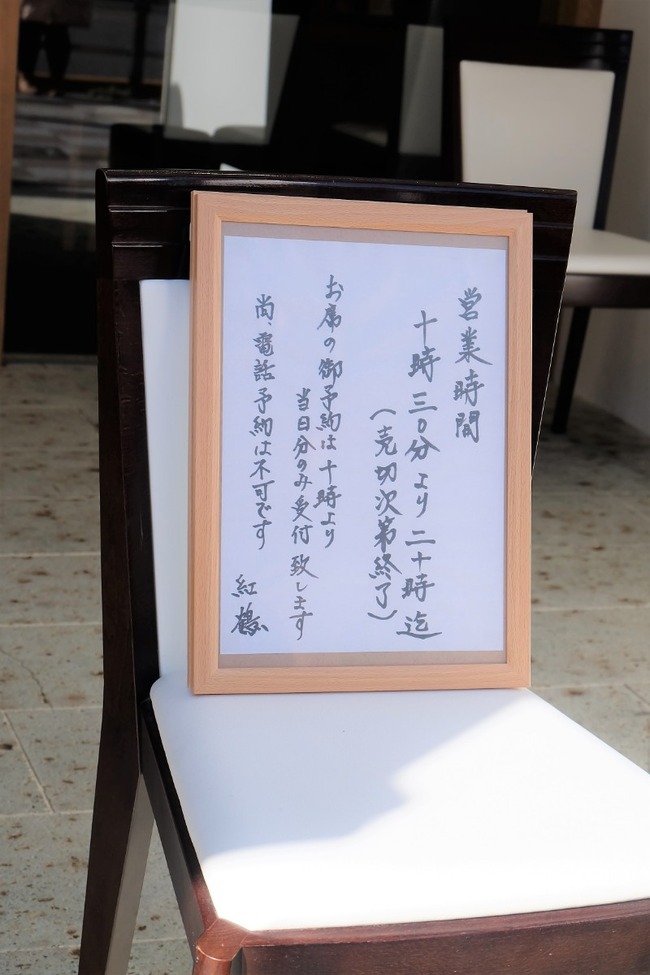 営業時間
十時三〇分より二十時迄
（売切次第終了）
お席の御予約は十時より
当日分のみ受付致します
尚、電話予約は不可です
紅鶴